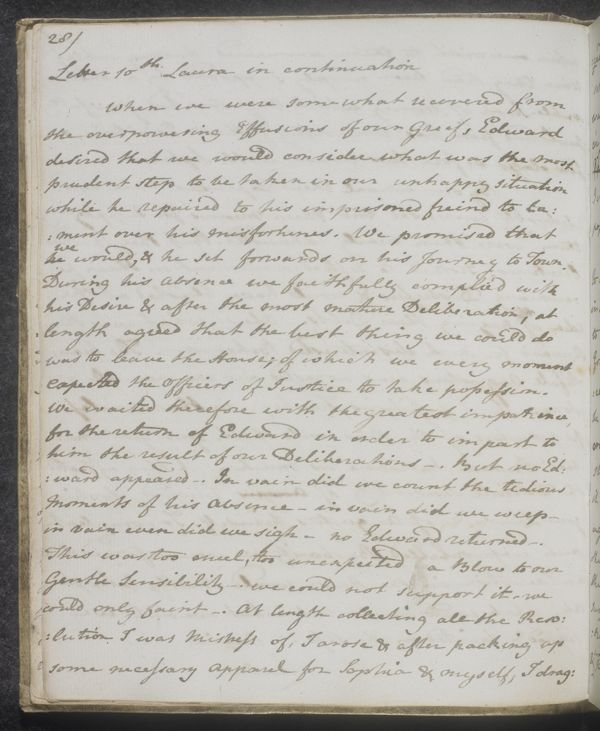 28)
Letter 10th Laura in continuation
When we were somewhat recovered from
the overpowering Effusions of our Greif, Edward
desired that we would consider what was the most
prudent step to be taken in our unhappy situation
while he repaired to his imprisoned freind to la:
:ment over his misfortunes. We promised that
we
he would, & he set forwards on his Journey to Town.
During his Absence we faithfully complied with
his Desire & after the most mature Deliberation, at
length agreed that the best thing we could do
was to leave the House; of which we every moment
expected the Officers of Justice to take possession.
We waited therefore with the greatest impatience,
for the return of Edward in order to impart to
him the result of our Deliberations -. But no Ed:
:ward appeared -. In vain did we count the tedious
Moments of his Absence - in vain did we weep -
in vain even did we sigh - no Edward returned -.
This was too cruel, too unexpected a Blow to our
Gentle Sensibility - we could not support it - we
could only faint -. At length collecting all the Reso:
:lution I was Mistress of, I arose & after packing up
some necessary Apparel for Sophia & myself, I drag: